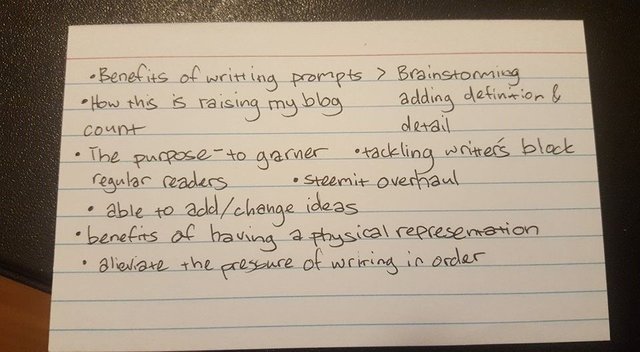 • Benefits of writting prompts > Brainstorming
• How this is raising my blog adding definition &
count detail
• The purpose - to garner • tackling writer's block
regular readers • steemit overhaul
• able to add/change ideas
• benefits of having a physical representation
• alieviate the pressure of writing in order